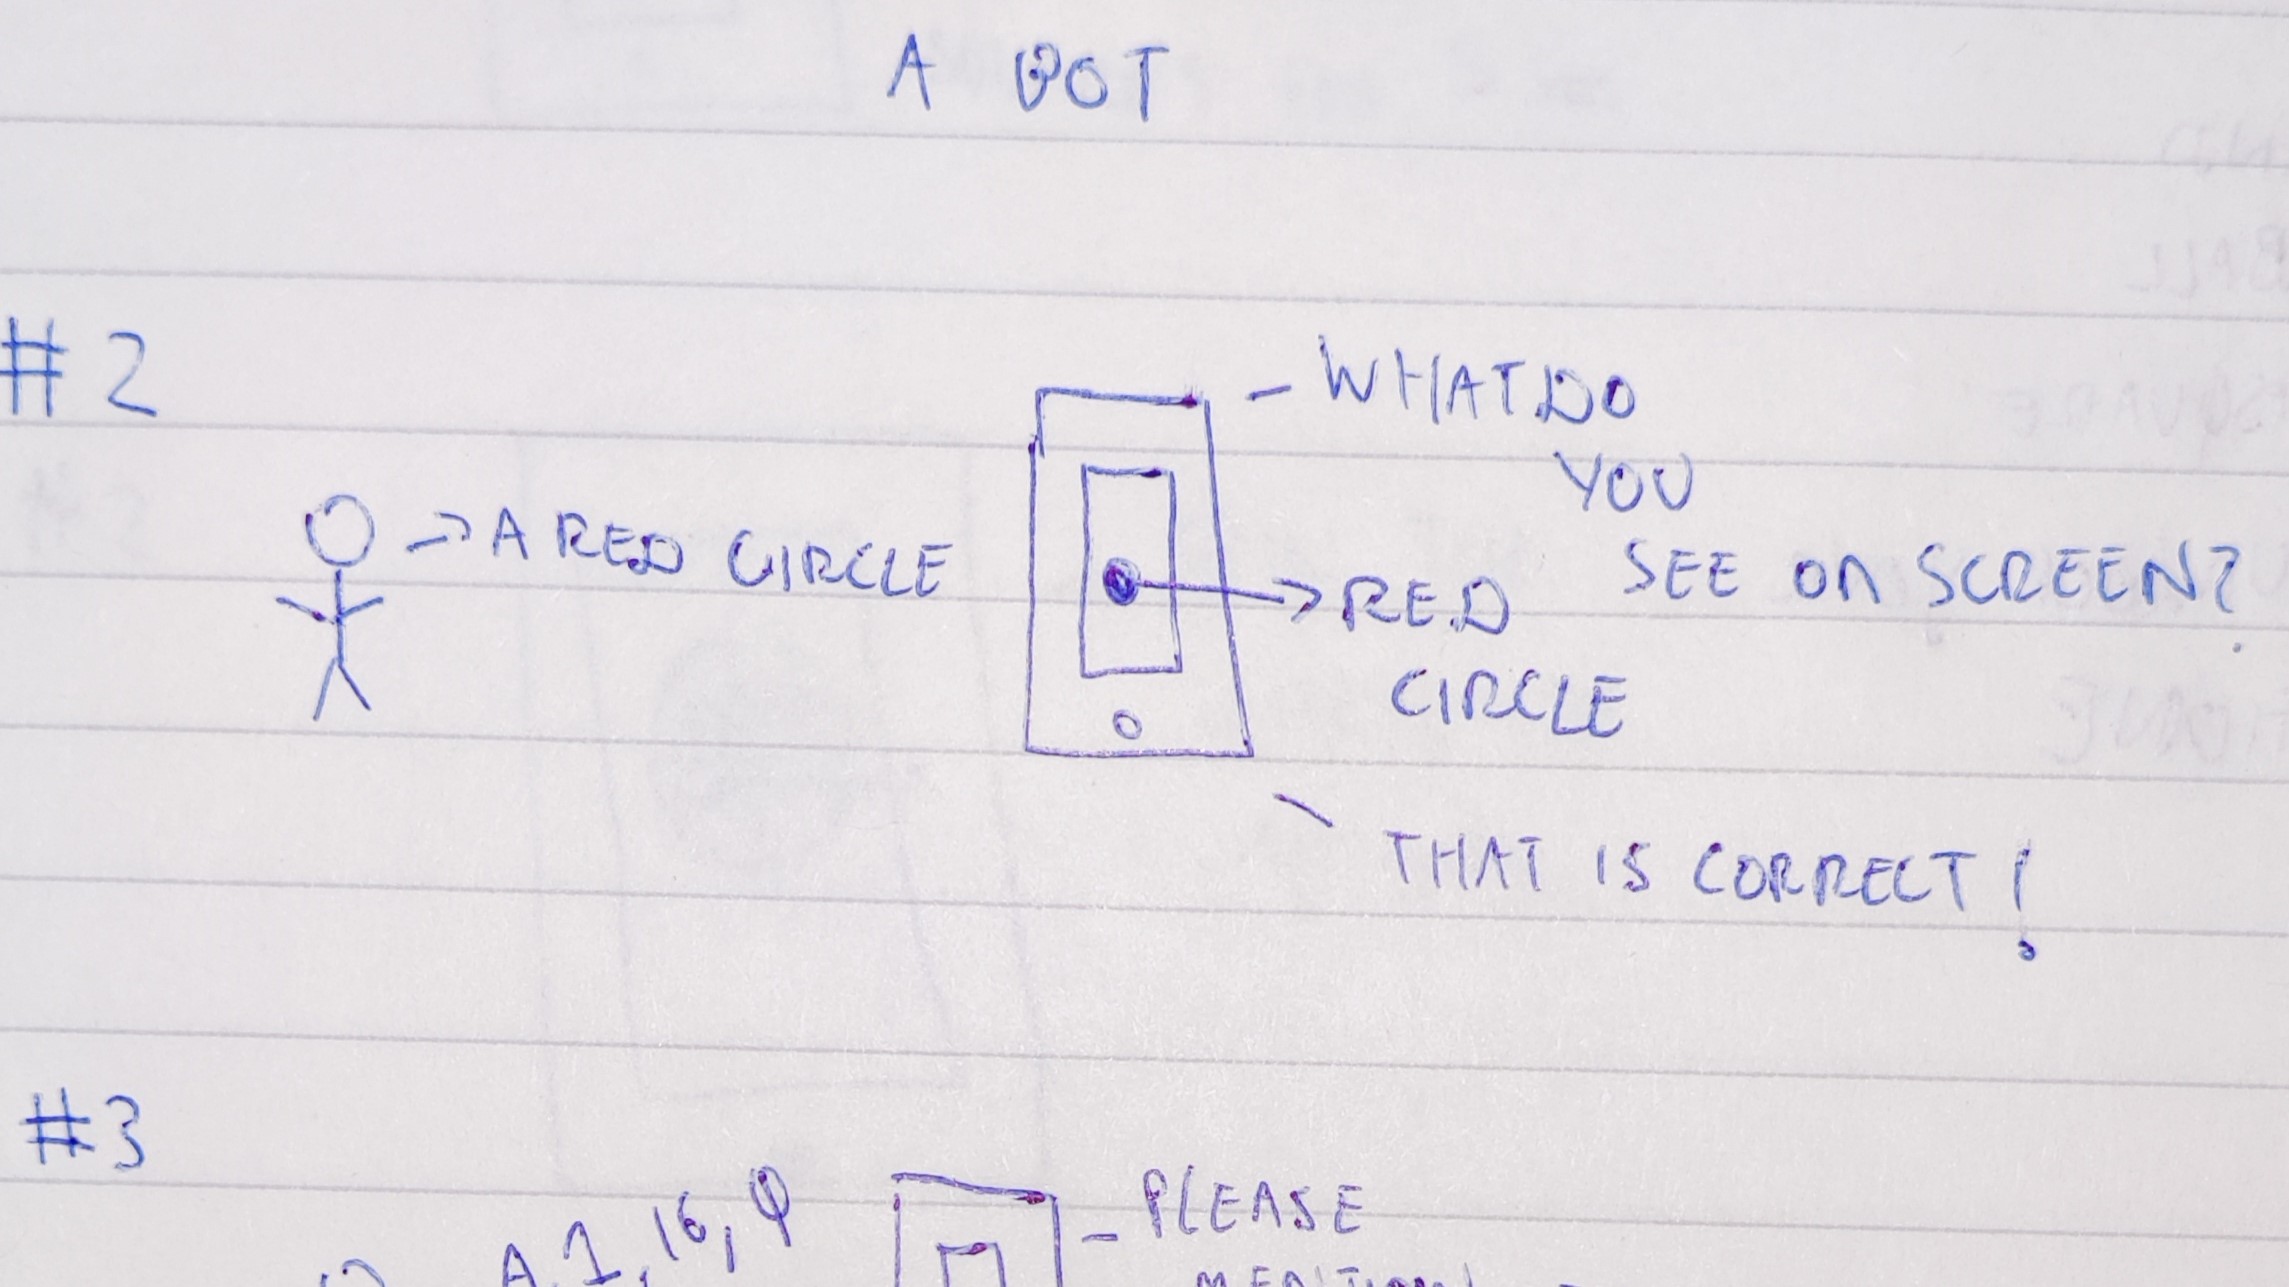 A BOT
#2
- WHAT DO
YOU
SEE ON SCREEN?
→ A RED CIRCLE
→ RED
CIRCLE
THAT IS CORRECT!
#3
A, 1, 16, φ
- PLEASE